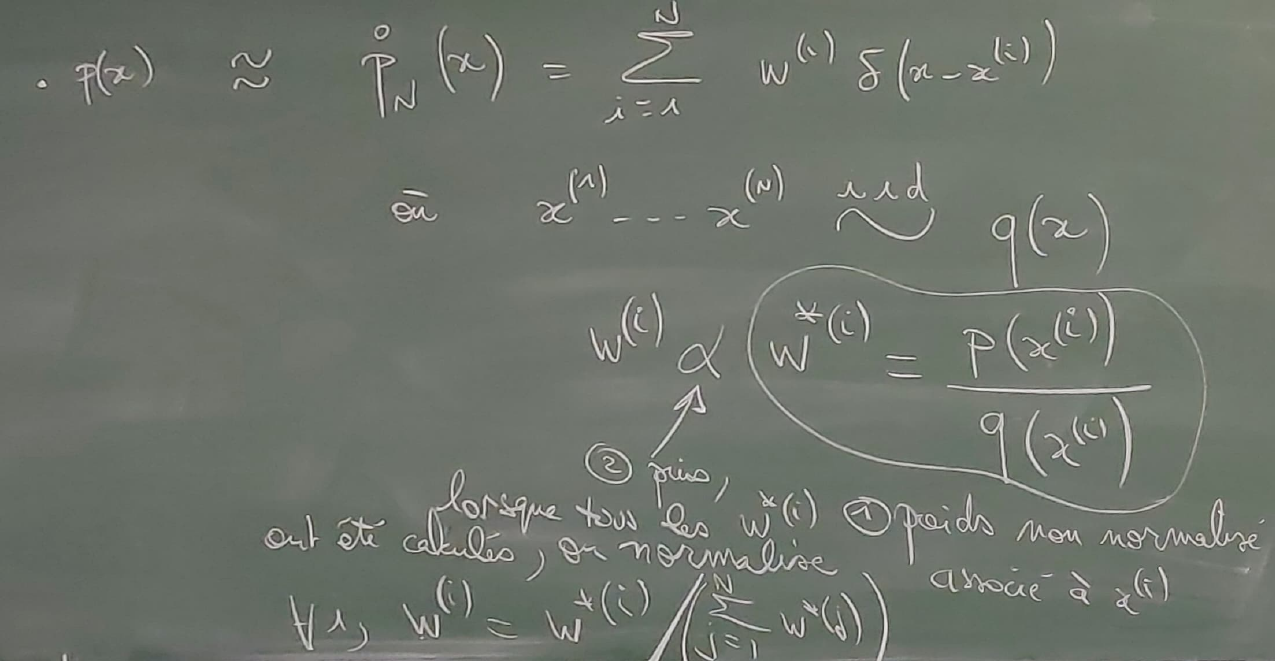 . p(x) ≈ p̊_N (x) = ∑_{i=1}^{N} w^{(i)} δ(x - x^{(i)})
où x^{(1)} --- x^{(N)} iid ~ q(x)
w^{(i)} ∝ w^{*(i)} = p(x^{(i)}) / q(x^{(i)})
② puis,
lorsque tous les w^{*(i)}
ont été calculés, on normalise
∀i, w^{(i)} = w^{*(i)} / (∑_{j=1}^{N} w^{*(j)})
① poids non normalisé
associé à x^{(i)}